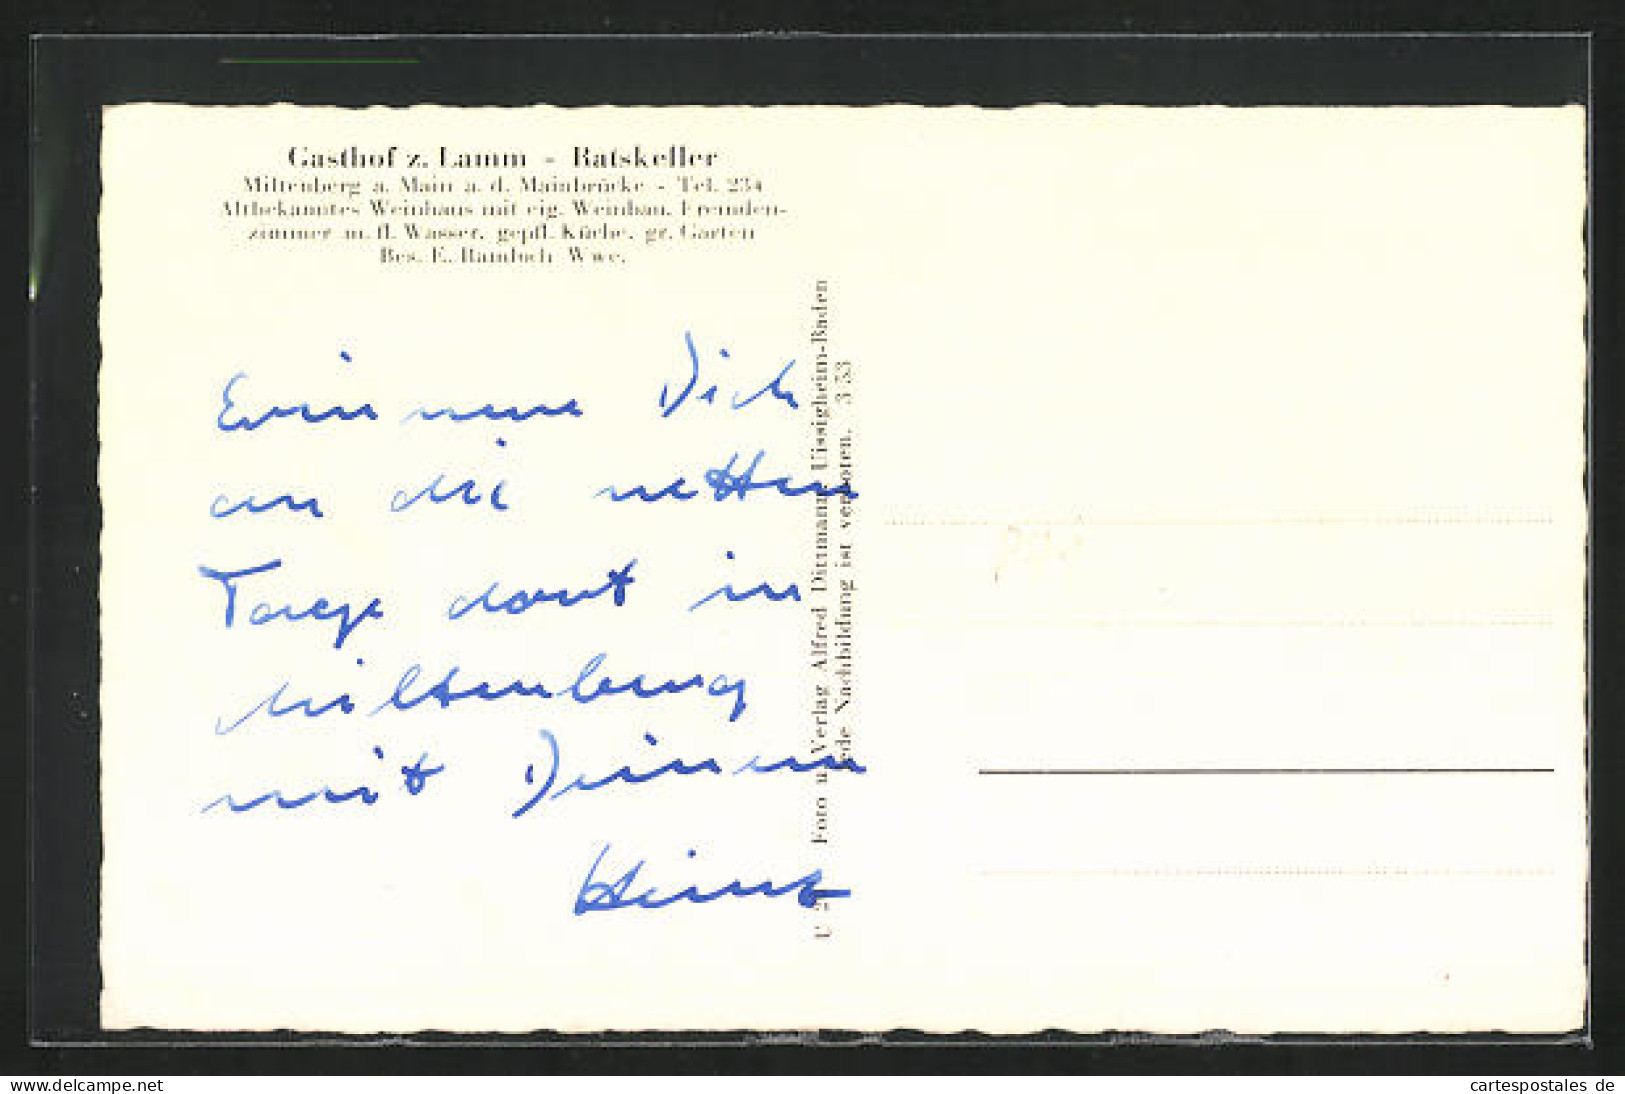 Gasthof z. Lamm - Ratskeller
Miltenberg a. Main a. d. Mainbrücke - Tel. 234
Altbekanntes Weinhaus mit eig. Weinbau, Fremden-
zimmer m. fl. Wasser, gepfl. Küche, gr. Garten
Bes. E. Wwe.
Erinnere Dich
an die netten
Tage dort in
Miltenberg
mit Deinem
Heinz
Foto u. Verlag Alfred Dittmann, Uissigheim-Baden
Jede Nachbildung ist verboten. 3/53
www.delcampe.net
cartespostales de